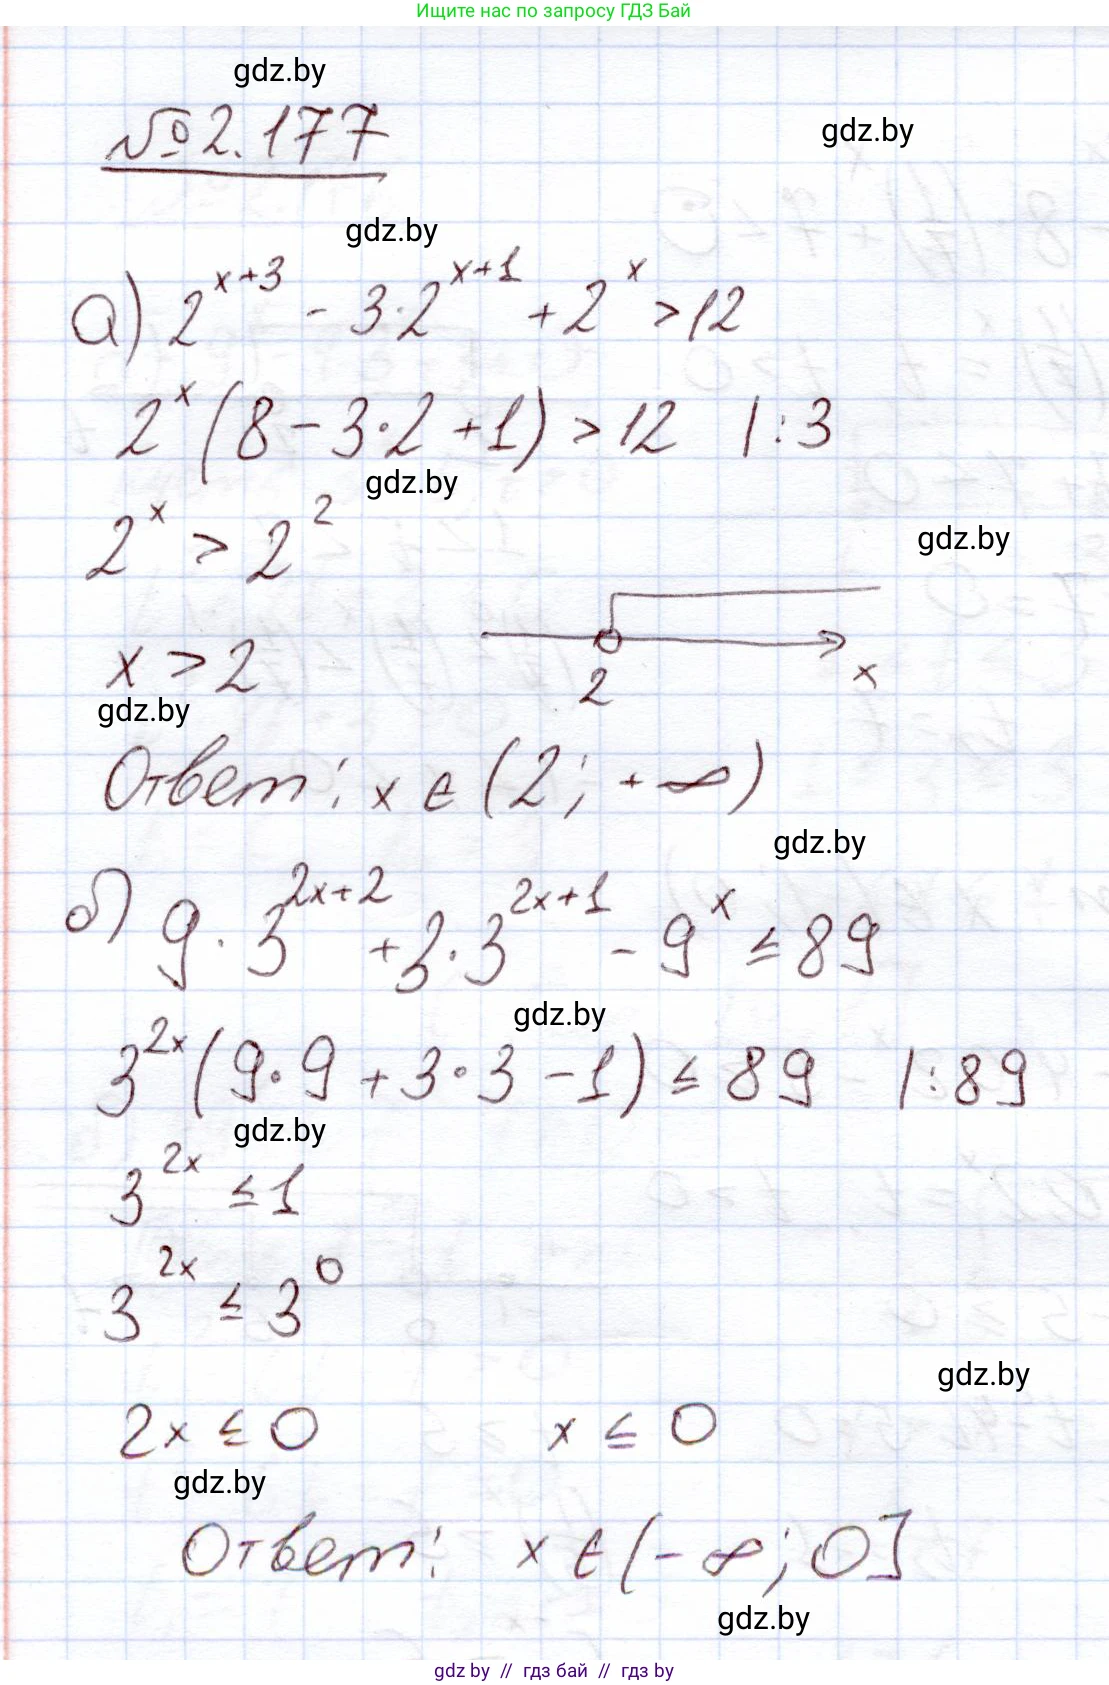 Ищите нас по запросу ГДЗ Бай
gdz.by
№ 2.177
gdz.by
gdz.by
а) 2^{x+3} - 3·2^{x+1} + 2^x > 12
2^x (8 - 3·2 + 1) > 12 | : 3
gdz.by
2^x > 2^2
gdz.by
x > 2
2 x
gdz.by
Ответ: x ∈ (2; +∞)
gdz.by
б) 9·3^{2x+2} + 3·3^{2x+1} - 9^x ≤ 89
gdz.by
3^{2x} (9·9 + 3·3 - 1) ≤ 89 | : 89
gdz.by
3^{2x} ≤ 1
3^{2x} ≤ 3^0
gdz.by
2x ≤ 0 x ≤ 0
gdz.by
Ответ: x ∈ (-∞; 0]
gdz.by
gdz by // гдз бай // гдз by